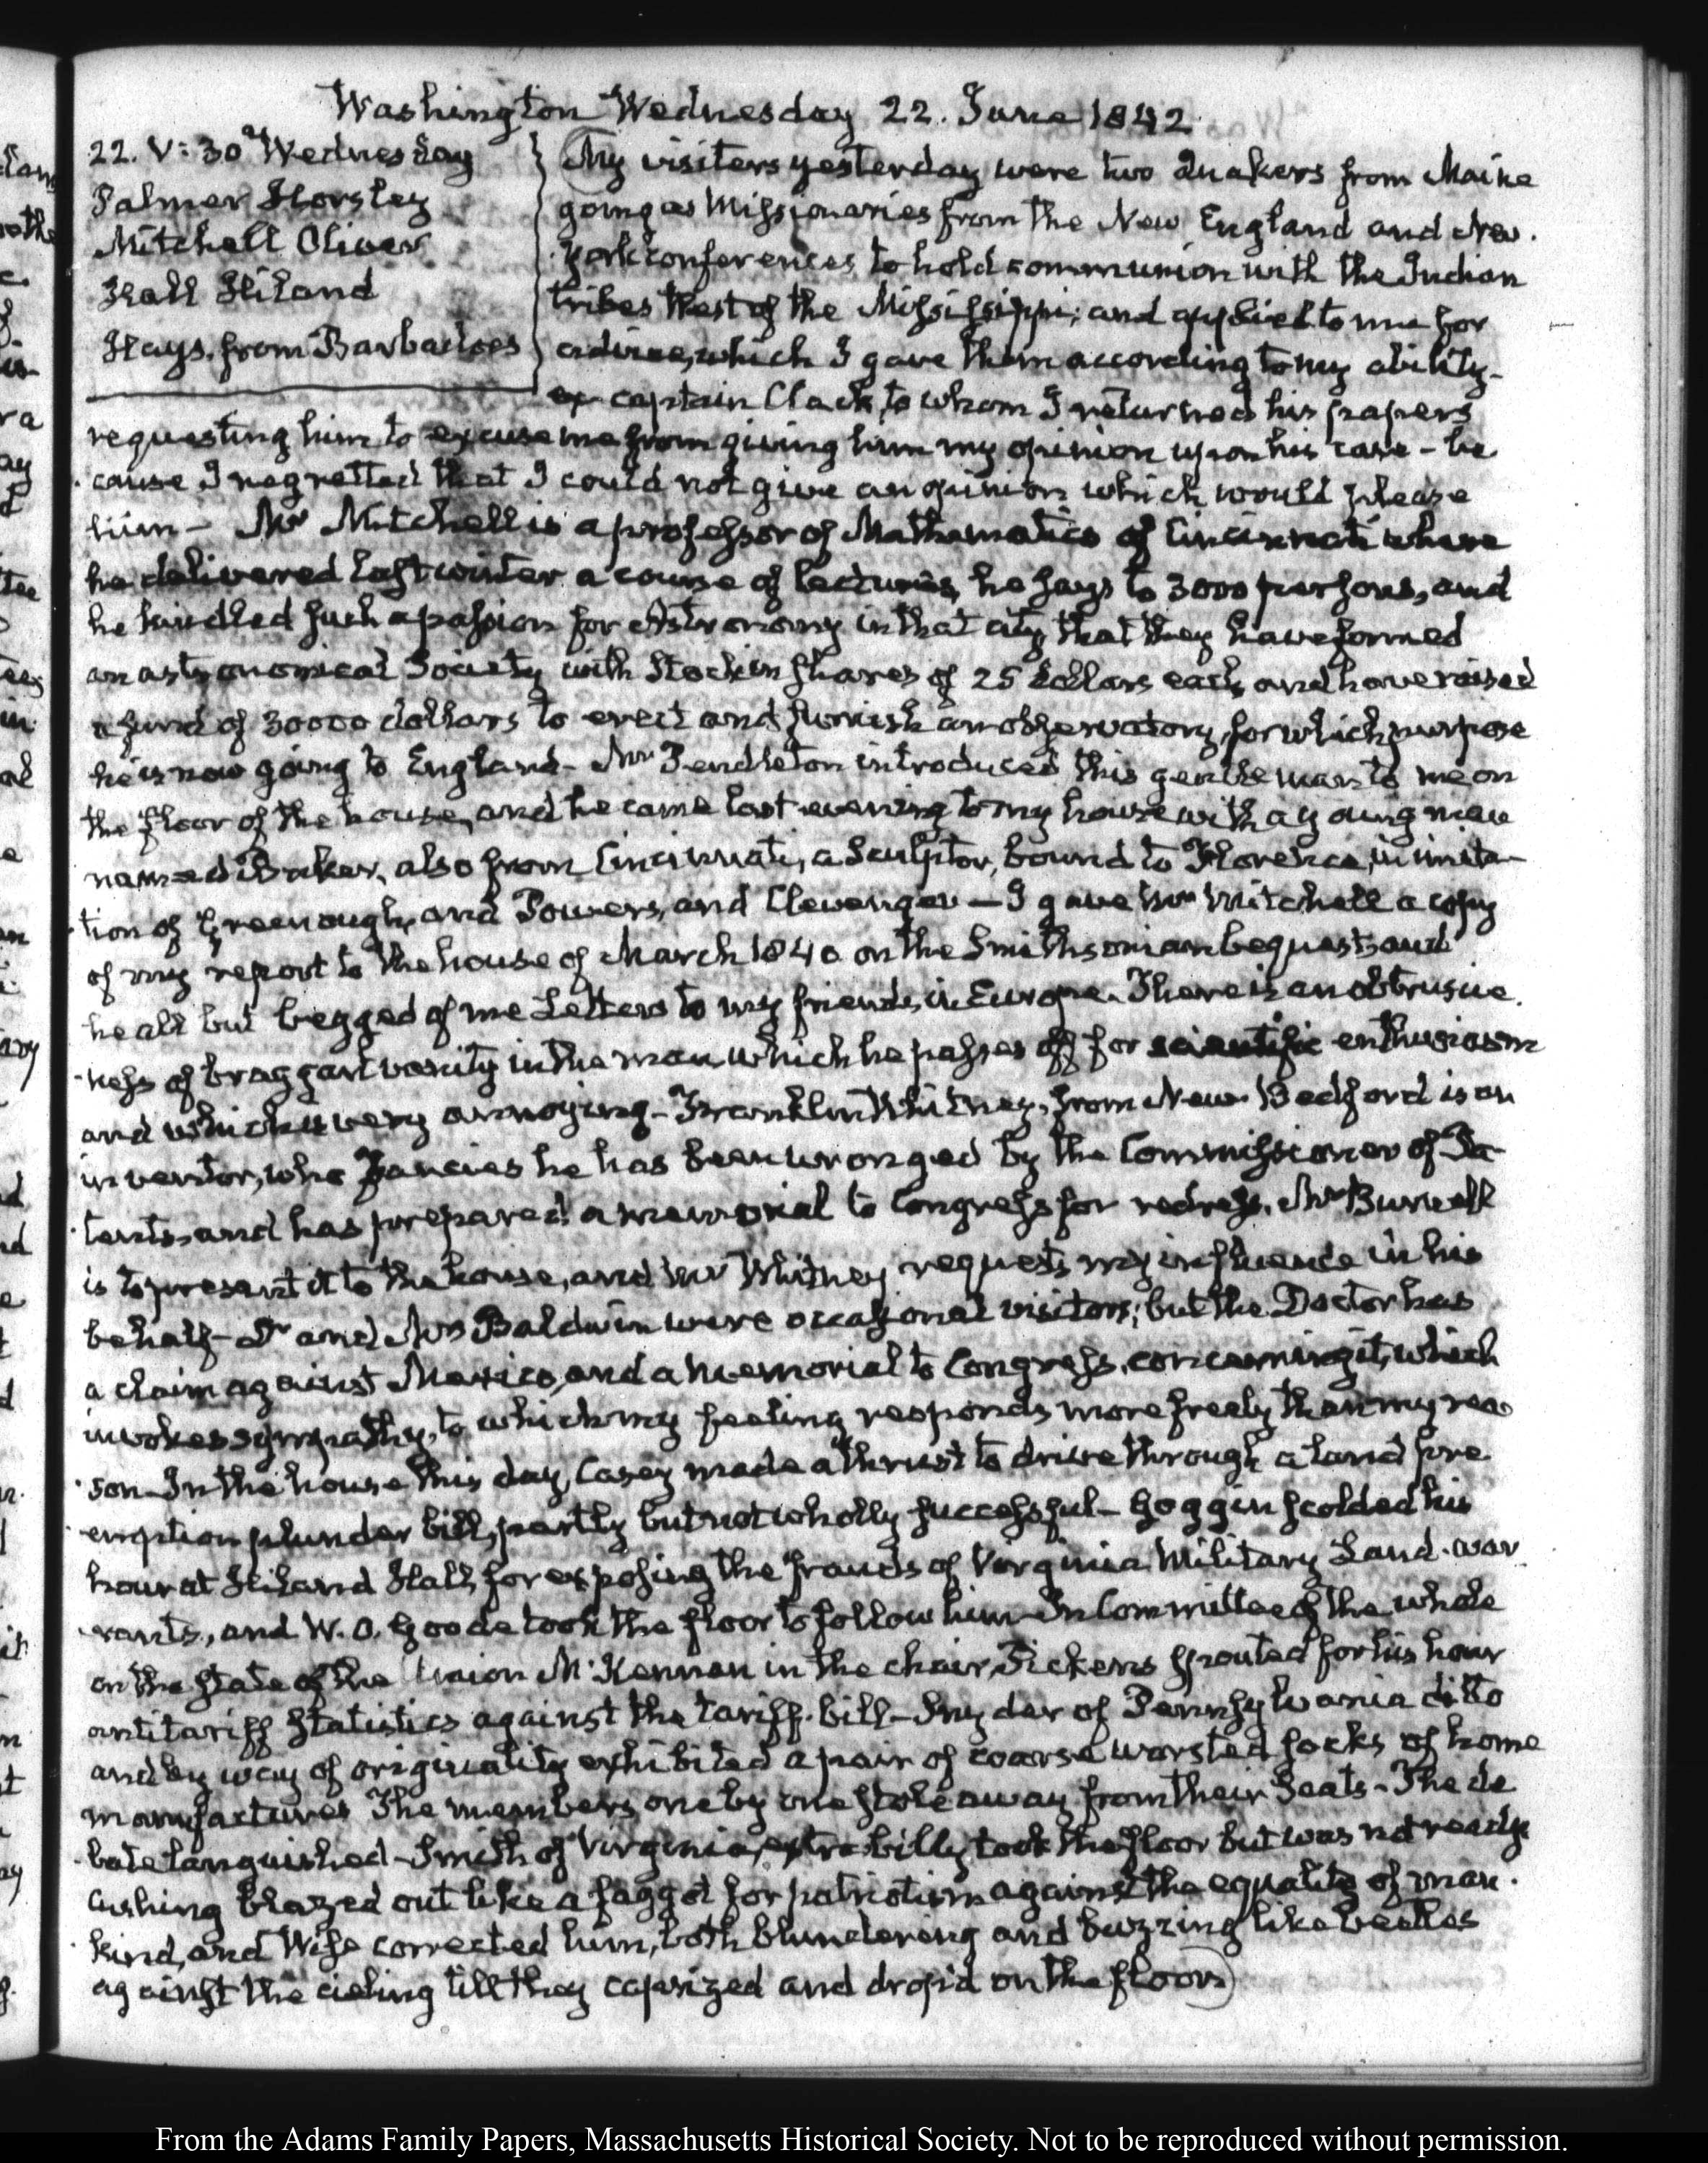 Washington Wednesday 22. June 1842
22. V: 30 Wednesday
Palmer Horsley
Mitchell Oliver
Hall Hiland
Hays. from Barbadoes
My visiters yesterday were two Quakers from Maine
going as Missionaries from the New England and New-
York conferences, to hold communion with the Indian
tribes West of the Mississippi; and applied to me for
advice, which I gave them according to my ability-
ex captain Clack, to whom I returned his papers
requesting him to excuse me from giving him my opinion upon his case - be
cause I regretted that I could not give an opinion which would please
him - Mr Mitchell is a professor of Mathematics of Cincinnati where
he delivered last winter a course of lectures, he says to 3000 persons, and
he kindled such a passion for Astronomy in that city, that they have formed
an astronomical Society with Stock in shares of 25 dollars each, and have raised
a fund of 30000 dollars to erect and furnish an observatory, for which purpose
he is now going to England - Mr Pendleton introduced this gentleman to me on
the floor of the house, and he came last evening to my house with a young man
named Baker, also from Cincinnati, a Sculptor, bound to Florence, in imita-
tion of Greenough, and Powers, and Clevenger — I gave Mr Mitchell a copy
of my report to the house of March 1840 on the Smithsonian bequest, and
he all but begged of me Letters to my friends in Europe. There is an obtrusive-
ness of braggart vanity in the man which he passes off for scientific enthusiasm
and which is very annoying - Franklin Whitney, from New Bedford is an
inventor, who fancies he has been wronged by the Commissioner of Pa-
tents, and has prepared a memorial to Congress for redress. Mr Burnell
is to present it to the house, and Mr Whitney requests my influence in his
behalf - Dr and Mrs Baldwin were occasional visitors; but the Doctor has
a claim against Mexico, and a memorial to Congress, concerning it, which
invokes sympathy, to which my feeling responds more freely than my rea
son - In the house this day, Casey made a thrust to drive through a land pre
emption plunder bill, partly but not wholly successful - Goggin scolded his
hour at Hiland Hall, for exposing the frauds of Virginia Military Land-war
rants, and W. O. Goode took the floor to follow him - In Committee of the whole
on the state of the Union McKennan in the chair, Pickens spouted for his hour
antitariff statistics against the tariff-bill - Snyder of Pennsylvania ditto
and by way of originality exhibited a pair of coarse worsted socks of home
manufactures The members one by one stole away from their Seats - The de
bate languished - Smith of Virginia, extra billy, took the floor but was not ready
Cushing blazed out like a faggot for patriotism against the equality of man-
kind, and Wise corrected him, both blundering and buzzing like beetles
against the cieling till they capsized and drop'd on the floor
From the Adams Family Papers, Massachusetts Historical Society. Not to be reproduced without permission.